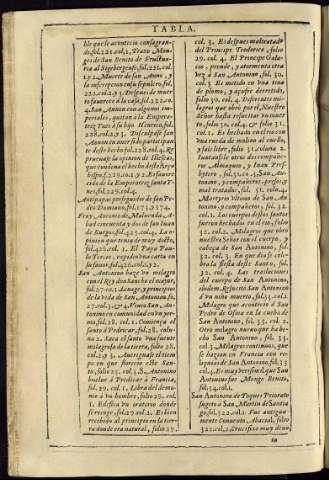 TABLA.
ble que le acontecio consagran-
do, fol. 221. col. 1. Traxo Mon-
ges de San Benito de
ria al Segebergense, fol. 225. col.
1. y 2. Muerte de san Annon, y
la inscripcion en su sepulcro, fol.
221. col. 2. y 3. Despues de muer
to fauorece à la casa, fol. 222. co. 4.
San Annon con algunos im-
periales, quitan à la Empera-
triz Ynes à su hijo Henrico, fol.
228. col. 2. y 3. Disculpase san
Annon de auer sido participan-
te deste hecho, fol. 228. col. 4. Re
prueuase la opinion de Illescas,
que condena el hecho deste Rey
fol. 229. col. 1. y 2.
cida de la Emperatriz santa Y-
nes, fol. 229. col. 4.
Antipapas perseguidos de san Pe-
dro Damiano, fol. 173. y 174.
Frey, Antonio de Maluenda, A-
bad cincuenta y dos de san Iuan
de Burgos, fol. 425. col. 4. La o-
pinion que tenia de muy docto,
fol. 426. col. 3. El Papa Pau-
lo Tercio, respondio vna carta en
su fauor, fol. 426. col. 3.
San Antonino haze vn milagro
con el Rey don Sancho el mayor,
fol. 27. col. 1. Linage, y principios
de la vida de San Antonino, fo.
27. col. 3. y 4. Viuio San An-
tonino en comunidad en vn yer-
mo, fol. 28. col. 1. Comiença el
santo à Predicar, fol. 28. colu-
na 2. Saca el santo vna fuente
milagrosa de la tierra, folio 28.
col. 2. y 3. Aueriguase el tiem-
po en que florecio este San-
to, folio 25. col. 3. S. Antonino
buelue à Predicar à Francia,
fol. 29. col. 1. Libra del demo-
nio à vn hombre, folio 29. col.
1. Edifica vn oratorio donde
se recoge, fol. 29 col. 2. Es bien
recibido al principio en la tier
ra donde era natural, folio 29.
col. 3. Es despues mal tratado
del Principe Teodorico, folio
29. col. 4. El Principe Gala-
cio, prende, y atormenta otra
vez à San Antonino, fol. 30.
col. 3. Es metido en vna tina
de plomo, y açufre derretido,
folio 30. col. 4. Despues de mila-
gros que obrò por el, Nuestro
Señor hasta resucitar vn muer-
to, folio 30. col. 4. y folio 31.
col. 1. Es hechado en el rio con
vna rueda de molino al cuello,
y sale libre, folio 31. coluna 2.
Iuntansele otros dos compañe-
ros Almaquio, y Iuan Pres-
bytero, fol. 31. co. 4. San An-
tonino, y compañeros, presos, y
mal tratados, fol. 31. col. 4.
Martyrio Vltimo de San An-
tonino, y compañeros, fol. 32.
col. 1. Los cuerpos destos santos
fueron hechados en el rio, folio
32. col. 2. Milagro que obrò
nuestro Señor con el cuerpo, y
cabeça de San Antonino, fol.
32. col. 3. En que dia se cele-
bra la fiesta deste Santo, fol.
32. col. 4. Las traslaciones
del cuerpo de San Antonino,
ibidem. Resucitò San Antonino
à vn niño muerto, fol. 33. col. 1.
Milagro que acontecio à San
Pedro de Osma en la cueba de
San Antonino fol. 33. col. 2.
Otro milagro nueuo que ha he-
cho San Antonino, folio 33.
col. 3. Milagro continuo, que
se hazian en Francia con re-
liquias de San Antonino, fol. 33.
col. 4. Es muy verisimil que San
Antonino fue Monge Benito,
fol. 34. col. 1.
San Antonino de Toques Priorato
sugeto à San Martin de Santia
go, fol. 322. col. 1. Fue antigua
mente Conuento, Abacial, folio
322. col. 1. Crucifixo muy deuo